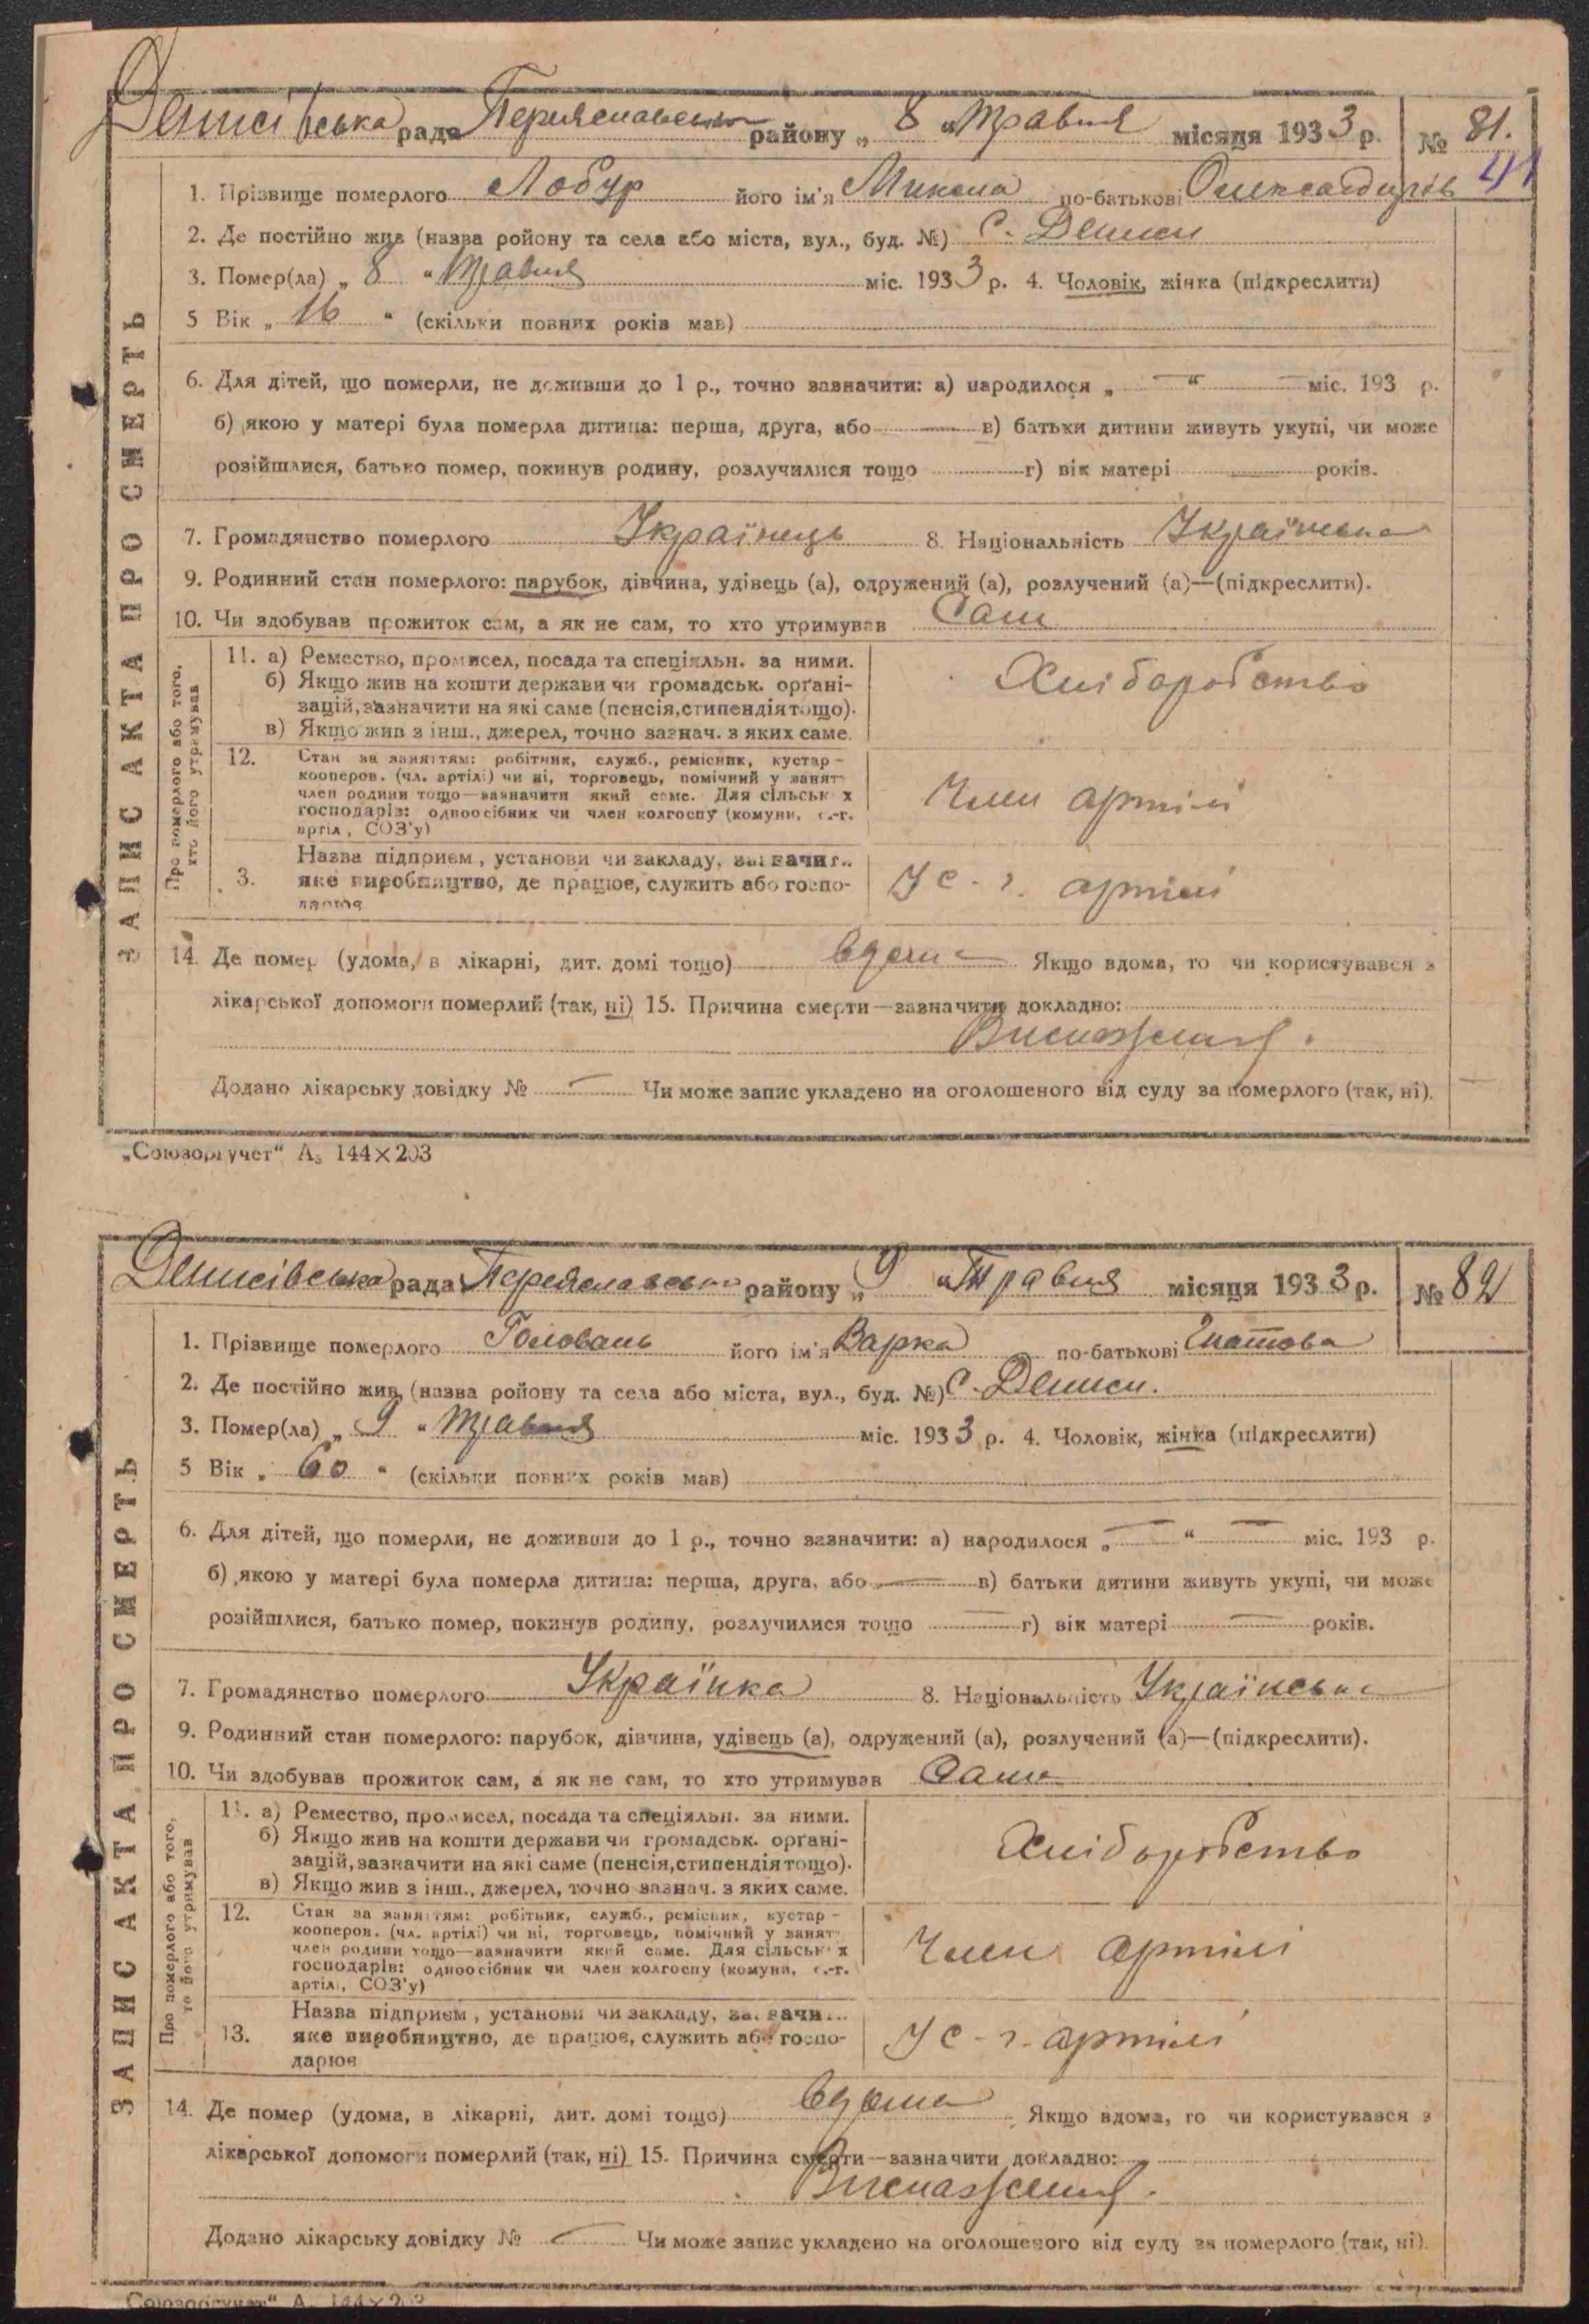 Денисівська рада Переяславського району „ 8 “ Травня місяця 1933 р. № 81.
41
1. Прізвище померлого Лобур його ім'я Микола по-батькові Олександрів
2. Де постійно жив (назва ройону та села або міста, вул., буд. №) С. Дениси
3. Помер(ла) „ 8 “ Травня міс. 1933 р. 4. Чоловік, жінка (підкреслити)
5 Вік „ 16 “ (скільки повних років мав)
6. Для дітей, що померли, не доживши до 1 р., точно зазначити: а) народилося „ — “ — міс. 193 р.
б) якою у матері була померла дитина: перша, друга, або — в) батьки дитини живуть укупі, чи може
розійшлися, батько помер, покинув родину, розлучилися тощо — г) вік матері — років.
7. Громадянство померлого Українець 8. Національність Українська
9. Родинний стан померлого: парубок, дівчина, удівець (а), одружений (а), розлучений (а)—(підкреслити).
10. Чи здобував прожиток сам, а як не сам, то хто утримував Сам
ЗАПИС АКТА ПРО СМЕРТЬ
Про померлого або того,
хто його утримував
11. а) Ремество, промисел, посада та спеціяльн. за ними.
б) Якщо жив на кошти держави чи громадськ. орґані-
зацій, зазначити на які саме (пенсія, стипендія тощо).
в) Якщо жив з інш., джерел, точно зазнач. з яких саме.
Хліборобство
12. Стан за заняттям: робітник, служб., ремісник, кустар -
кооперов. (чл. артілі) чи ні, торговець, помічний у занят-
член родини тощо—зазначити який саме. Для сільськ х
господарів: одноосібник чи член колгоспу (комуни, с.-г.
артіл , СОЗ'у)
Член артілі
3. Назва підприєм , установи чи закладу, зазначит.
яке виробництво, де працює, служить або госпо-
дарює
У с.-г. артілі
14. Де помер (удома, в лікарні, дит. домі тощо) вдома Якщо вдома, то чи користувався з
лікарської допомоги померлий (так, ні) 15. Причина смерти—зазначити докладно:
Виснаження.
Додано лікарську довідку № — Чи може запис укладено на оголошеного від суду за померлого (так, ні).
„Союзоргучет“ А₅ 144×203
Денисівська рада Переяславського району „ 9 “ Травня місяця 1933 р. № 82
1. Прізвище померлого Головань його ім'я Варка по-батькові Гнатова
2. Де постійно жив (назва ройону та села або міста, вул., буд. №) С. Дениси.
3. Помер(ла) „ 9 “ Травня міс. 1933 р. 4. Чоловік, жінка (підкреслити)
5 Вік „ 60 “ (скільки повних років мав)
6. Для дітей, що померли, не доживши до 1 р., точно зазначити: а) народилося „ — “ — міс. 193 р.
б) якою у матері була померла дитина: перша, друга, або — в) батьки дитини живуть укупі, чи може
розійшлися, батько помер, покинув родину, розлучилися тощо — г) вік матері — років.
7. Громадянство померлого Українка 8. Національність Українська
9. Родинний стан померлого: парубок, дівчина, удівець (а), одружений (а), розлучений (а)—(підкреслити).
10. Чи здобував прожиток сам, а як не сам, то хто утримував Сама
ЗАПИС АКТА ПРО СМЕРТЬ
Про померлого або того,
то його утримував
11. а) Ремество, промисел, посада та спеціяльн. за ними.
б) Якщо жив на кошти держави чи громадськ. орґані-
зацій, зазначити на які саме (пенсія, стипендія тощо).
в) Якщо жив з інш., джерел, точно зазнач. з яких саме.
Хліборобство
12. Стан за заняттям: робітник, служб., ремісник, кустар -
кооперов. (чл. артілі) чи ні, торговець, помічний у занят-
член родини тощо—зазначити який саме. Для сільськ х
господарів: одноосібник чи член колгоспу (комуни, с.-г.
артіл , СОЗ'у)
Член артілі
13. Назва підприєм , установи чи закладу, зазначи...
яке виробництво, де працює, служить або госпо-
дарює
У с.-г. артілі
14. Де помер (удома, в лікарні, дит. домі тощо) вдома Якщо вдома, то чи користувався з
лікарської допомоги померлий (так, ні) 15. Причина смерти—зазначити докладно:
Виснаження.
Додано лікарську довідку № — Чи може запис укладено на оголошеного від суду за померлого (так, ні).
„Союзоргучет“ А₅ 144×203